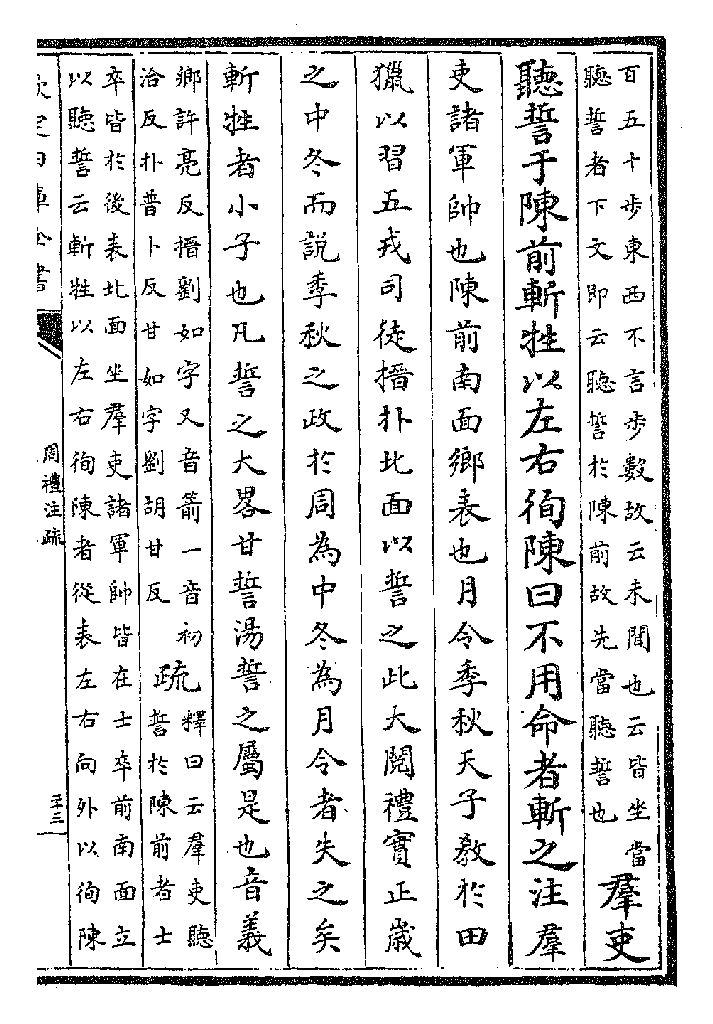 百五十步東西不言步數故云未聞也云皆坐當
聽誓者下文即云聽誓於陳前故先當聽誓也
羣吏
聽誓于陳前斬牲以左右徇陳曰不用命者斬之注羣
吏諸軍帥也陳前南面鄉表也月令季秋天子敎於田
獵以習五戎司徒搢扑北面以誓之此大閱禮實正歲
之中冬而說季秋之政於周為中冬為月令者失之矣
斬牲者小子也凡誓之大畧甘誓湯誓之屬是也音義
鄉許亮反搢劉如字又音箭一音初
洽反扑普卜反甘如字劉胡甘反
疏
釋曰云羣吏聽
誓於陳前者士
卒皆於後表北面坐羣吏諸軍帥皆在士卒前南面立
以聽誓云斬牲以左右徇陳者從表左右向外以徇陳
欽定四庫全書
周禮注疏